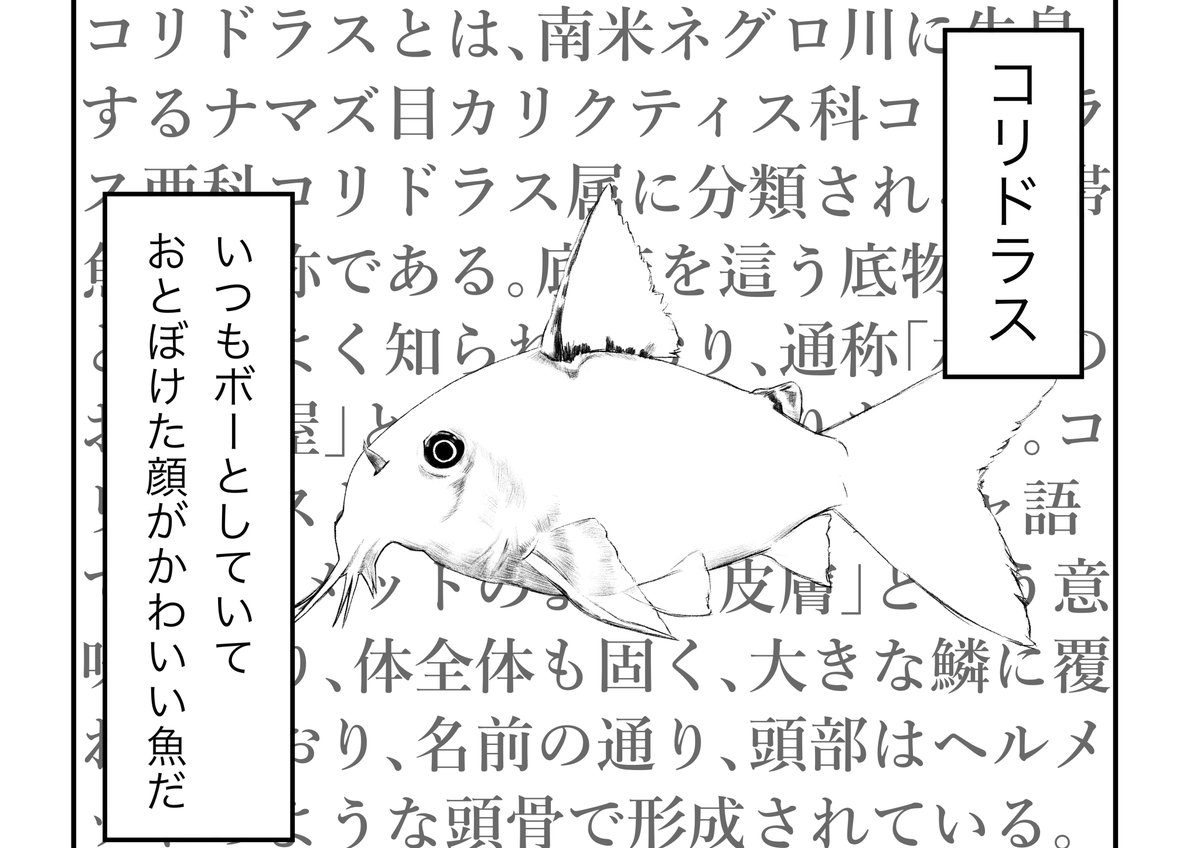 コリドラス
いつもボーとしていて
おとぼけた顔がかわいい魚だ
コリドラスとは、南米ネグロ川に生息
するナマズ目カリクティス科コ ラ
ス亜科コリドラス属に分類され 帯
魚 称である。底 を這う底物
よく知られ り、通称「 の
屋」と 。コ
ス 語
メットの 皮膚」と う意
り、体全体も固く、大きな鱗に覆
おり、名前の通り、頭部はヘルメ
ような頭骨で形成されている。